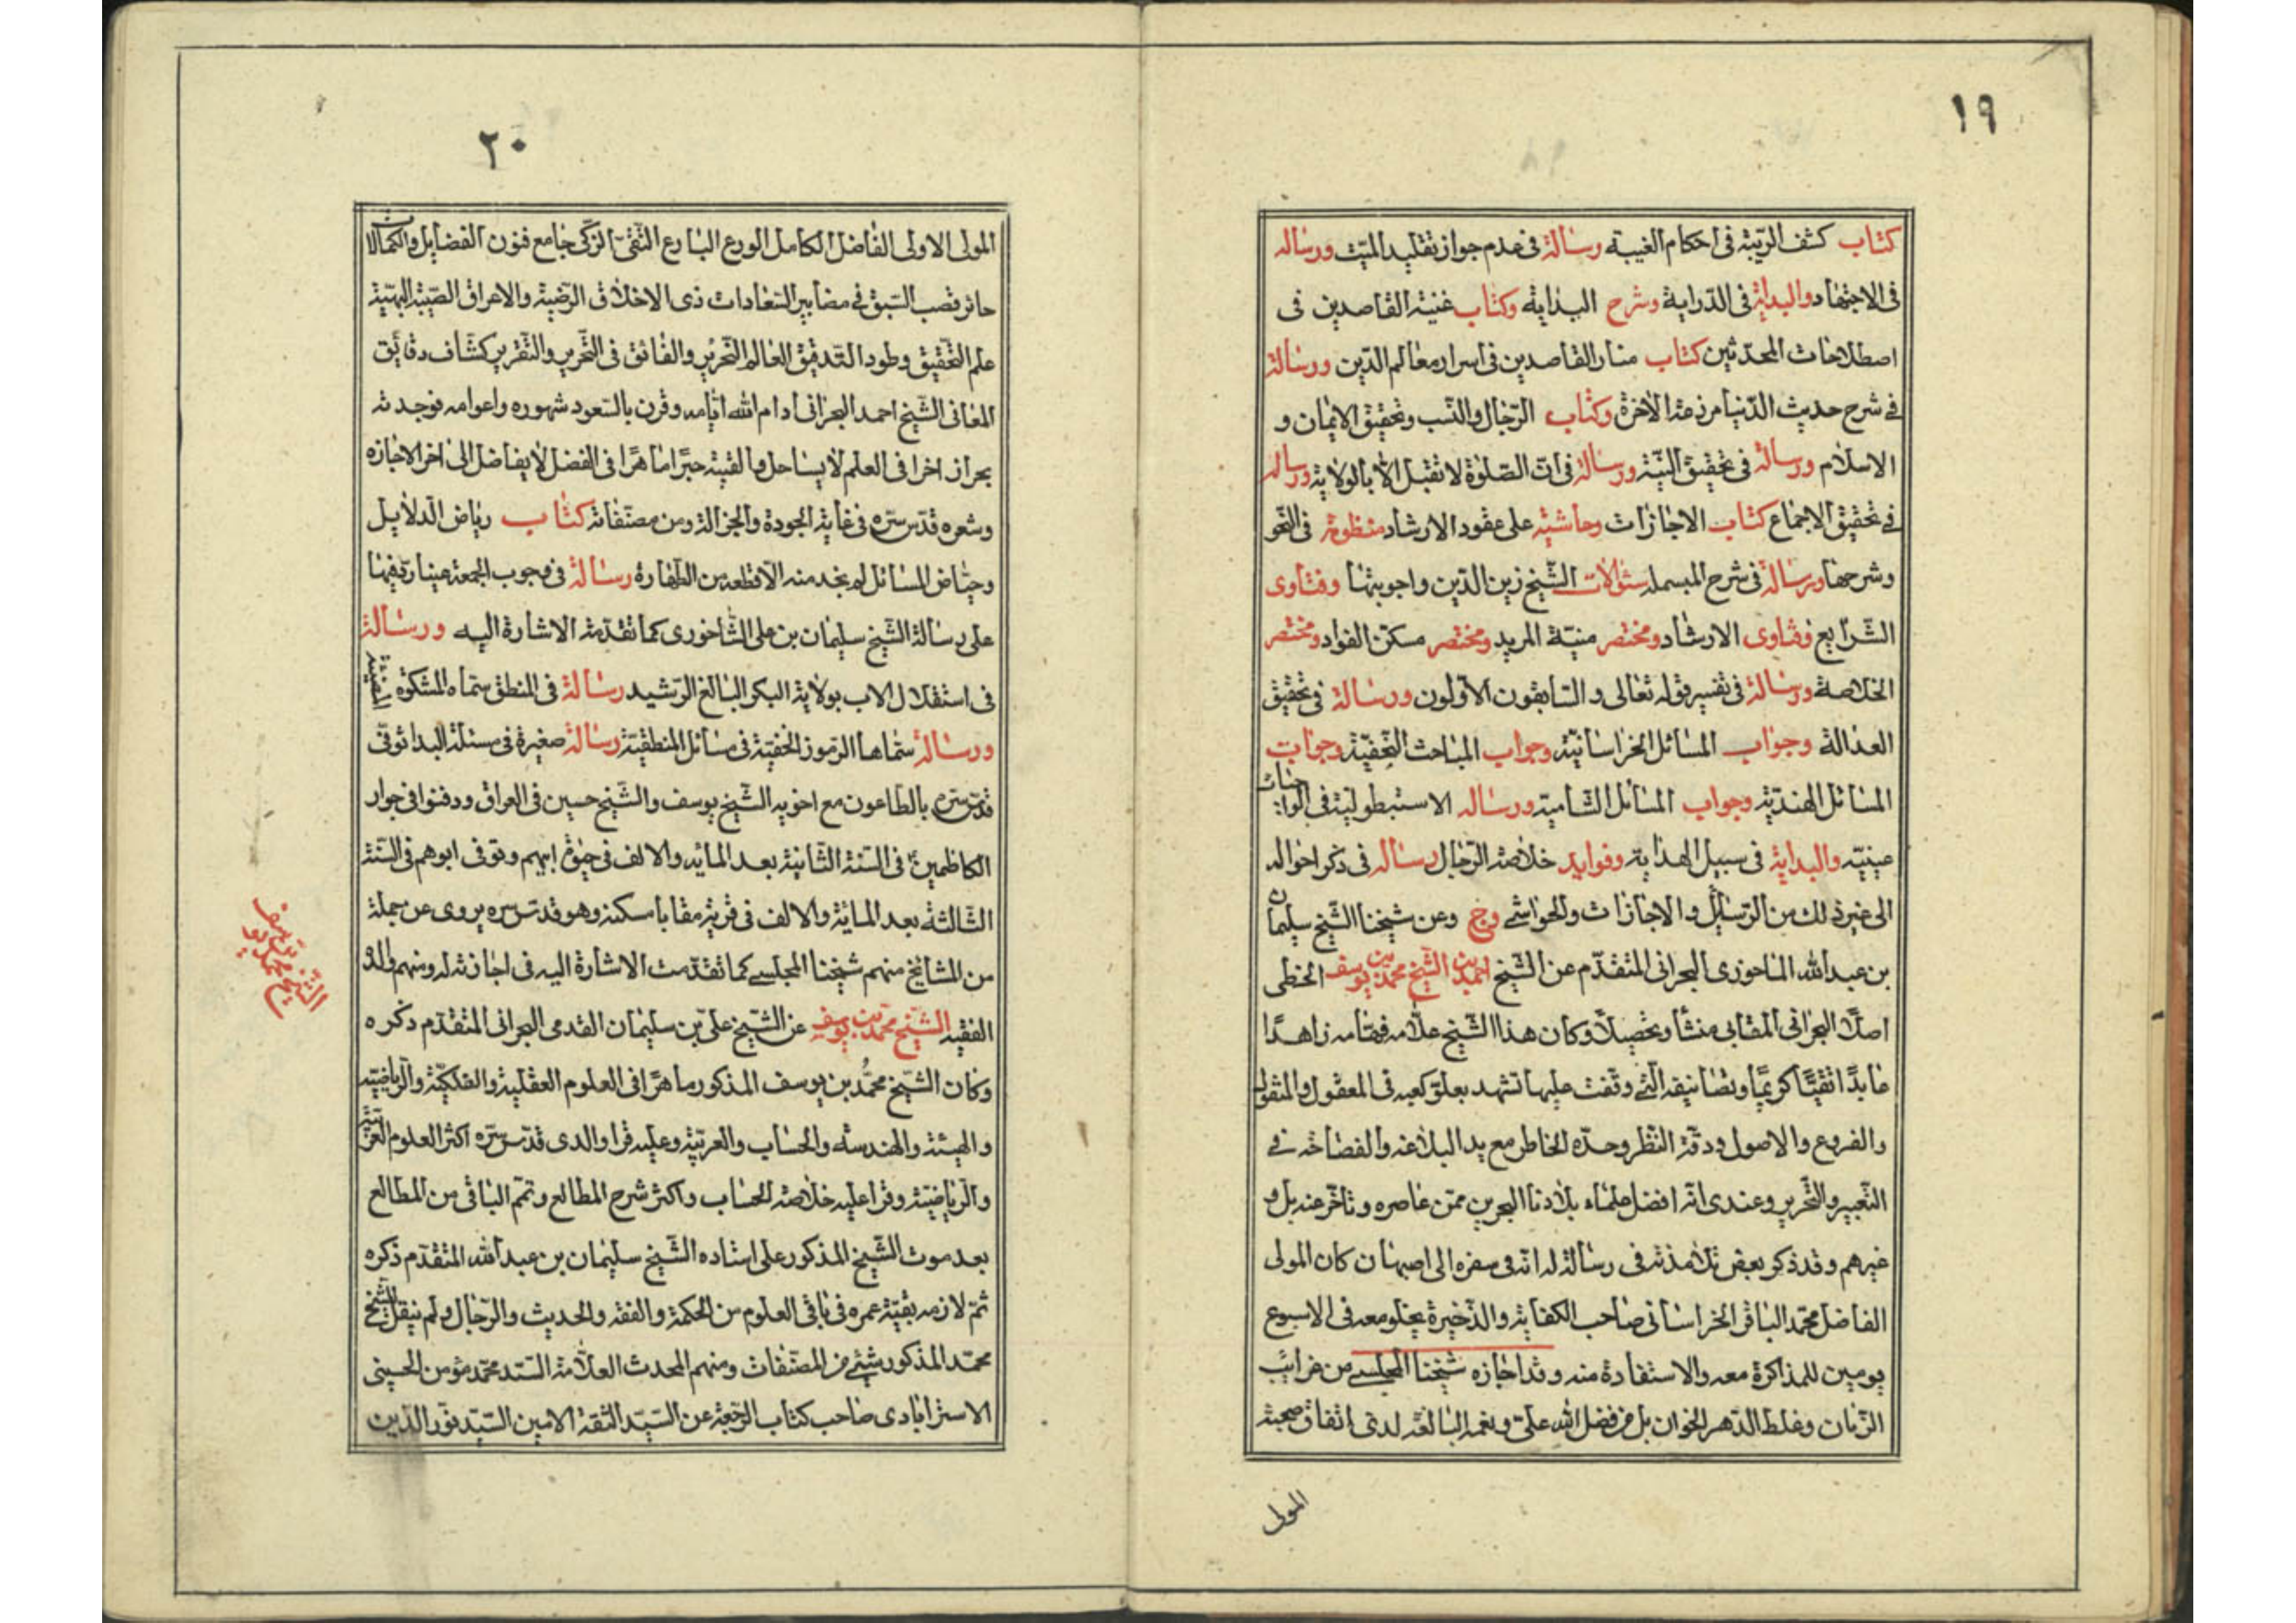 ١٩
كتاب كشف الريبة فى احكام الغيبة رسالة فى عدم جواز تقليد الميت ورساله
فى الاجتهاد والبداية فى الدراية وشرح البداية وكتاب غنية القاصدين فى
اصطلاحات المحدثين كتاب منار القاصدين فى اسرار معالم الدين ورسالة
فى شرح حديث الدنيا مزرعة الآخرة وكتاب الرجال والنسب وتحقيق الايمان و
الاسلام ورسالة فى تحقيق النية ورسالة فى ان الصلوة لا تقبل الا بالولاية ورساله
فى تحقيق الاجماع كتاب الاجازات وحاشية على عقود الارشاد منظومة فى النحو
وشرحها ورسالة فى شرح البسملة سئوالات الشيخ زين الدين واجوبتها وفتاوى
الشرايع وفتاوى الارشاد ومختصر منية المريد ومختصر مسكن الفواد ومختصر
الخلاصة ورسالة فى تفسير قوله تعالى والسابقون الاولون ورسالة فى تحقيق
العدالة وجواب المسائل الخراسانية وجواب المباحث النجفية وجواب
المسائل الهندية وجواب المسائل الشامية ورساله الاستبطولية فى الواجبات
عينية والبداية فى سبيل الهداية وفوايد خلاصة الرجال رساله فى ذكر احواله
الى غير ذلك من الرسائل والاجازات والحواشى وعن شيخنا الشيخ سليمان
بن عبد الله الماحوزى البحرانى المتقدم عن الشيخ احمد بن الشيخ محمد بن يوسف الخطى
اصلا البحرانى المقابى منشأ وتحصيلا وكان هذا الشيخ علامه فهامه زاهدا
عابدا تقيا كريما وتصانيفه التى وقفت عليها تشهد بعلو كعبه فى المعقول والمنقول
والفروع والاصول ودقة النظر وحدة الخاطر مع يد البلاغه والفصاحه فى
التعبير والتحرير وعندى انه افضل علماء بلادنا البحرين ممن عاصره وتاخر عنه بل و
غيرهم وقد ذكر بعض تلامذته فى رسالة له انه فى سفره الى اصبهان كان المولى
الفاضل محمد الباقر الخراسانى صاحب الكفاية والذخيرة يخلو معه فى الاسبوع
يومين للمذاكرة معه والاستفادة منه وقد اجازه شيخنا المجلسى من غرايب
الزمان وغلط الدهر الخوان بل من فضل الله على ونعمه البالغه لدى اتفاق صحبة
المولى
٢٠
المولى الاولى الفاضل الكامل الورع البارع التقى الزكى جامع فنون الفضايل والكمالات
حائز قصب السبق فى مضامير السعادات ذى الاخلاق الرضية والاعراق الطيبة البهية
علم التحقيق وطود التدقيق العالم النحرير والفائق فى التحرير والتقرير كشاف دقايق
المعانى الشيخ احمد البحرانى ادام الله ايامه وقرن بالسعود شهوره واعوامه فوجدته
بحرا زاخرا فى العلم لا يساحل والفيته حبرا ماهرا فى الفضل لا يفاضل الى اخر الاجازه
وشعره قدس سره فى غاية الجودة والجزالة ومن مصنفاته كتاب رياض الدلايل
وحياض المسائل لم يخد منه الا قطعة من الطهارة رسالة فى وجوب الجمعة عينا رد فيها
على رسالة الشيخ سليمان بن على الشاخورى كما تقدمت الاشارة اليه ورسالة
فى استقلال الاب بولاية البكر البالغ الرشيد رسالة فى المنطق سماه المشكوة المضيئة
ورسالة سماها الرموز الخفية فى مسائل المنطقية رسالة صغيرة فى مسئلة البدا توفى
قدس سره بالطاعون مع اخويه الشيخ يوسف والشيخ حسين فى العراق ودفنوا فى جوار
الكاظمين فى السنة الثانية بعد المايه والالف فى حيوة ابيهم وتوفى ابوهم فى السنة
الثالثة بعد الماية والالف فى قرية مقابا مسكنه وهو قدس سره يروى عن جملة
من المشائخ منهم شيخنا المجلسى كما تقدمت الاشارة اليه فى اجازته له ومنهم والده
الفقيه الشيخ محمد بن يوسف عن الشيخ على بن سليمان القدمى البحرانى المتقدم ذكره
وكان الشيخ محمد بن يوسف المذكور ماهرا فى العلوم العقلية والفلكية والرياضيه
والهيئة والهندسة والحساب والعربية وعليه قرا والدى قدس سره اكثر العلوم العربية
والرياضية وقرا عليه خلاصة الحساب واكثر شرح المطالع وتمم الباقى من المطالع
بعد موت الشيخ المذكور على استاده الشيخ سليمان بن عبد الله المتقدم ذكره
ثم لازمه بقية عمره فى باقى العلوم من الحكمة والفقه والحديث والرجال ولم ينقل للشيخ
محمد المذكور شئ من المصنفات ومنهم المحدث العلامة السيد محمد مؤمن الحسينى
الاسترابادى صاحب كتاب الرجعة عن السيد الثقة الامين السيد نور الدين
الشيخ محمد بن يوسف